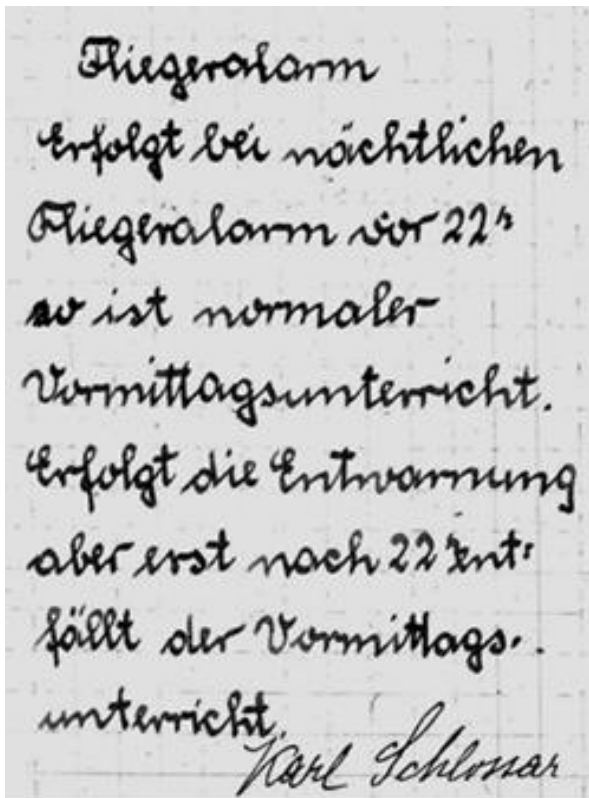 Fliegeralarm
Erfolgt bei nächtlichen
Fliegeralarm vor 22ʰ
so ist normaler
Vormittagsunterricht.
Erfolgt die Entwarnung
aber erst nach 22ʰ ent-
fällt der Vormittags-
unterricht.
Karl Schlossar